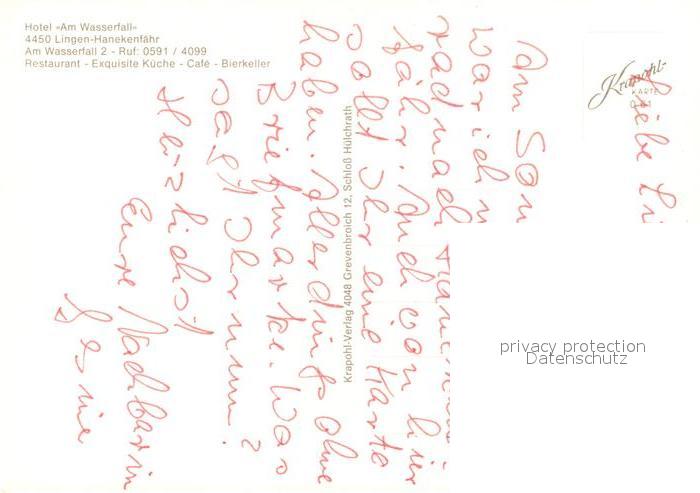 Hotel »Am Wasserfall«
4450 Lingen-Hanekenfähr
Am Wasserfall 2 - Ruf: 0591 / 4099
Restaurant - Exquisite Küche - Café - Bierkeller
Krapohl-
KARTE
Krapohl-Verlag 4048 Grevenbroich 12, Schloß Hülchrath
Liebe
Am
war ich
rad nach
fähr. Auch von hier
sollt Ihr eine Karte
haben. Allerdings ohne
Briefmarke. Was
sagt Ihr nun?
Herzlichst
Eure Nachbarin
Gesine
privacy protection
Datenschutz